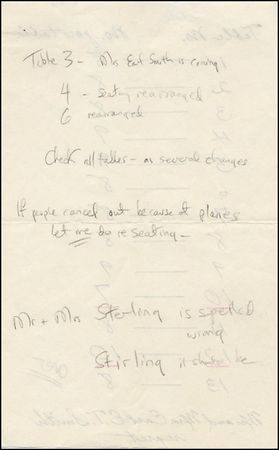 Table 3 - Mrs Earl Smith is coming
4 - seating rearranged
6 rearranged
Check all tables - as several changes
If people cancel out because of planes
let me do re seating -
Mr + Mrs Sterling is spelled
wrong
Stirling it should be